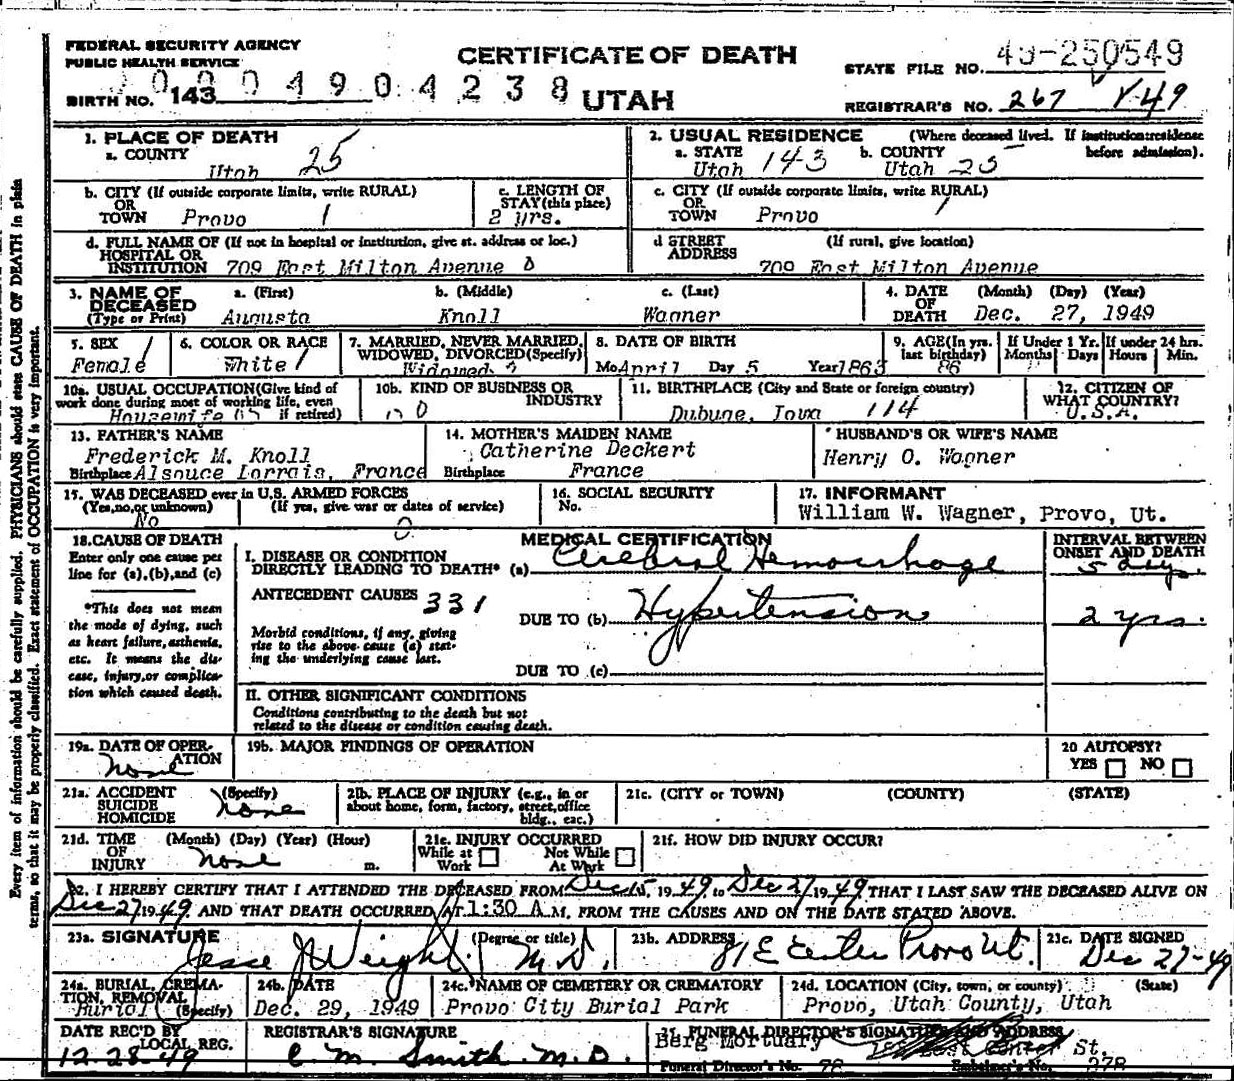 FEDERAL SECURITY AGENCY
PUBLIC HEALTH SERVICE
CERTIFICATE OF DEATH
STATE FILE NO. 49-250549
BIRTH NO. 143
UTAH
REGISTRAR'S NO. 267
1. PLACE OF DEATH
a. COUNTY
Utah 25
2. USUAL RESIDENCE (Where deceased lived. If institution:residence before admission).
a. STATE Utah 143 b. COUNTY Utah 25
b. CITY (If outside corporate limits, write RURAL)
OR
TOWN Provo 1
c. LENGTH OF
STAY (this place)
2 yrs.
c. CITY (If outside corporate limits, write RURAL)
OR
TOWN Provo
d. FULL NAME OF (If not in hospital or institution, give st. address or loc.)
HOSPITAL OR
INSTITUTION 709 East Milton Avenue
d STREET (If rural, give location)
ADDRESS
709 East Milton Avenue
3. NAME OF DECEASED (Type or Print)
a. (First) b. (Middle) c. (Last)
Augusta Knoll Wagner
4. DATE OF DEATH (Month) (Day) (Year)
Dec. 27, 1949
5. SEX
Female
6. COLOR OR RACE
White
7. MARRIED, NEVER MARRIED,
WIDOWED, DIVORCED (Specify)
Widowed
8. DATE OF BIRTH
Mo April Day 5 Year 1863
9. AGE (In yrs. last birthday)
86
If Under 1 Yr. Months Days
If under 24 hrs. Hours Min.
10a. USUAL OCCUPATION (Give kind of
work done during most of working life, even
Housewife if retired)
10b. KIND OF BUSINESS OR
INDUSTRY
11. BIRTHPLACE (City and State or foreign country)
Dubuqe, Iowa 114
12. CITIZEN OF
WHAT COUNTRY?
U.S.A.
13. FATHER'S NAME
Frederick M. Knoll
Birthplace Alsouce Lorrais, France
14. MOTHER'S MAIDEN NAME
Catherine Deckert
Birthplace France
HUSBAND'S OR WIFE'S NAME
Henry O. Wagner
15. WAS DECEASED ever in U.S. ARMED FORCES
(Yes, no, or unknown) (If yes, give war or dates of service)
No
16. SOCIAL SECURITY
No.
17. INFORMANT
William W. Wagner, Provo, Ut.
18. CAUSE OF DEATH
Enter only one cause per
line for (a), (b), and (c)
*This does not mean
the mode of dying, such
as heart failure, asthenia,
etc. It means the dis-
ease, injury, or complica-
tion which caused death.
MEDICAL CERTIFICATION
I. DISEASE OR CONDITION
DIRECTLY LEADING TO DEATH* (a) Cerebral Hemorrhage
INTERVAL BETWEEN
ONSET AND DEATH
5 days.
ANTECEDENT CAUSES 331
DUE TO (b) Hypertension
2 yrs.
Morbid conditions, if any, giving
rise to the above cause (a) stat-
ing the underlying cause last.
DUE TO (c)
II. OTHER SIGNIFICANT CONDITIONS
Conditions contributing to the death but not
related to the disease or condition causing death.
19a. DATE OF OPER-
ATION
None
19b. MAJOR FINDINGS OF OPERATION
20 AUTOPSY?
YES NO
21a. ACCIDENT (Specify)
SUICIDE None
HOMICIDE
21b. PLACE OF INJURY (e.g., in or
about home, form, factory, street, office
bldg., eac.)
21c. (CITY or TOWN) (COUNTY) (STATE)
21d. TIME (Month) (Day) (Year) (Hour)
OF
INJURY None m.
21e. INJURY OCCURRED
While at Work Not While At Work
21f. HOW DID INJURY OCCUR?
22. I HEREBY CERTIFY THAT I ATTENDED THE DECEASED FROM Dec 15, 1949, to Dec 27, 1949, THAT I LAST SAW THE DECEASED ALIVE ON
Dec 27 1949 AND THAT DEATH OCCURRED AT 1:30 A M, FROM THE CAUSES AND ON THE DATE STATED ABOVE.
23a. SIGNATURE (Degree or title)
Jesse J Weight M.D.
23b. ADDRESS
81 E Center Provo Ut.
23c. DATE SIGNED
Dec 27-49
24a. BURIAL, CREMA-
TION, REMOVAL
Burial (Specify)
24b. DATE
Dec. 29, 1949
24c. NAME OF CEMETERY OR CREMATORY
Provo City Burial Park
24d. LOCATION (City, town, or county) (State)
Provo, Utah County, Utah
DATE REC'D BY
LOCAL REG.
12-28-49
REGISTRAR'S SIGNATURE
C. M. Smith M.D.
25. FUNERAL DIRECTOR'S SIGNATURE AND ADDRESS
Berg Mortuary East Center St.
Funeral Director's No. 78 Embalmer's No. 278
Every item of information should be carefully supplied. PHYSICIANS should state CAUSE OF DEATH in plain
terms, so that it may be properly classified. Exact statement of OCCUPATION is very important.